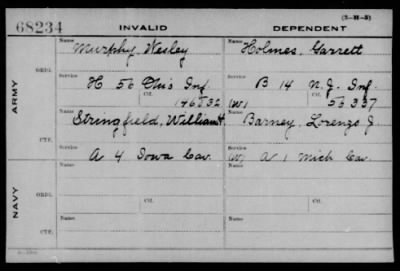 (3—H—5)
68234 INVALID DEPENDENT
Name Name
Murphy, Wesley Holmes, Garrett
ARMY
ORIG.
Service Service
H 56 Ohio Inf. B 14 N.J. Inf.
Ctf. Ctf.
146532 (W) 53337
Name Name
Stringfield, William H. Barney, Lorenzo J.
CTF.
Service Service
A 4 Iowa Cav. (W) A 1 Mich Cav.
NAVY
Name Name
ORIG.
Service Ctf. Service Ctf.
Name Name
CTF.
Service Service